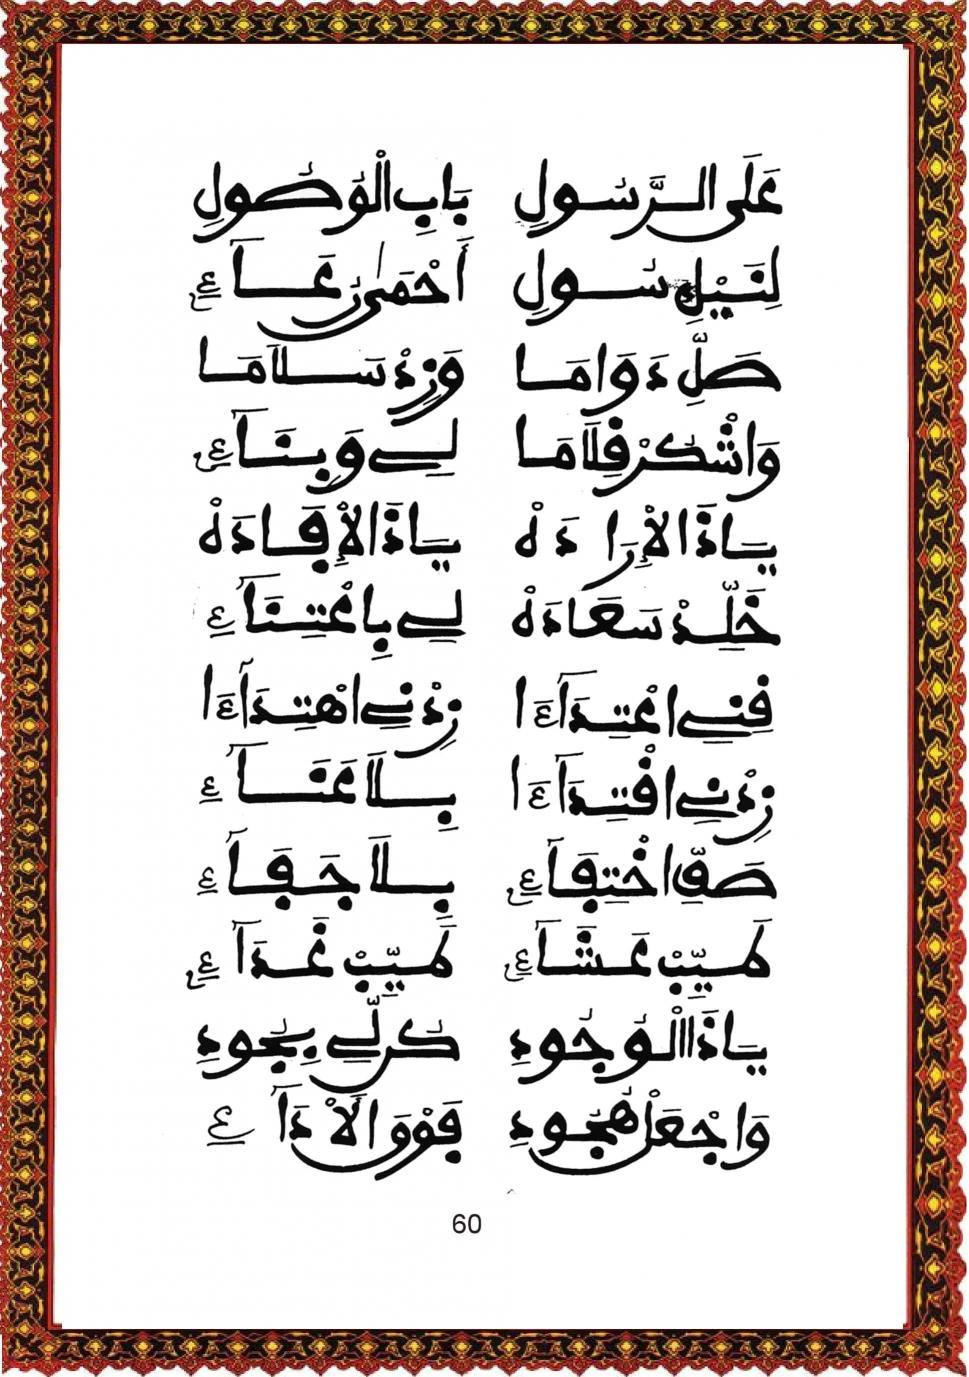 عَلَى الرَّسُولِ بَابِ الْوُصُولِ
لِنَيْلِ سُولِ أَحْمَى رُعَآءِ
صَلِّ دَوَامَا وَزِدْ سَلَامَا
وَاشْكُرْ فِلَامَا لِي وَبِنَآءِ
يَاذَا الْإِرَادَهْ يَاذَا الْإِفَادَهْ
خَلِّدْ سَعَادَهْ لِي بِاعْتِنَآءِ
قِنِي اعْتِدَآءَا زِدْنِي اهْتِدَآءَا
زِدْنِي اقْتِدَآءَا بِلَا عَنَآءِ
صَفِّ اخْتِفَآءِ بِلَا جَفَآءِ
طَيِّبْ عَشَآءِ طَيِّبْ غَدَآءِ
يَاذَا الْوُجُودِ كُنْ لِي بِجُودِ
وَاجْعَلْ هُجُودِ فَوْقَ الْأَدَآءِ
60